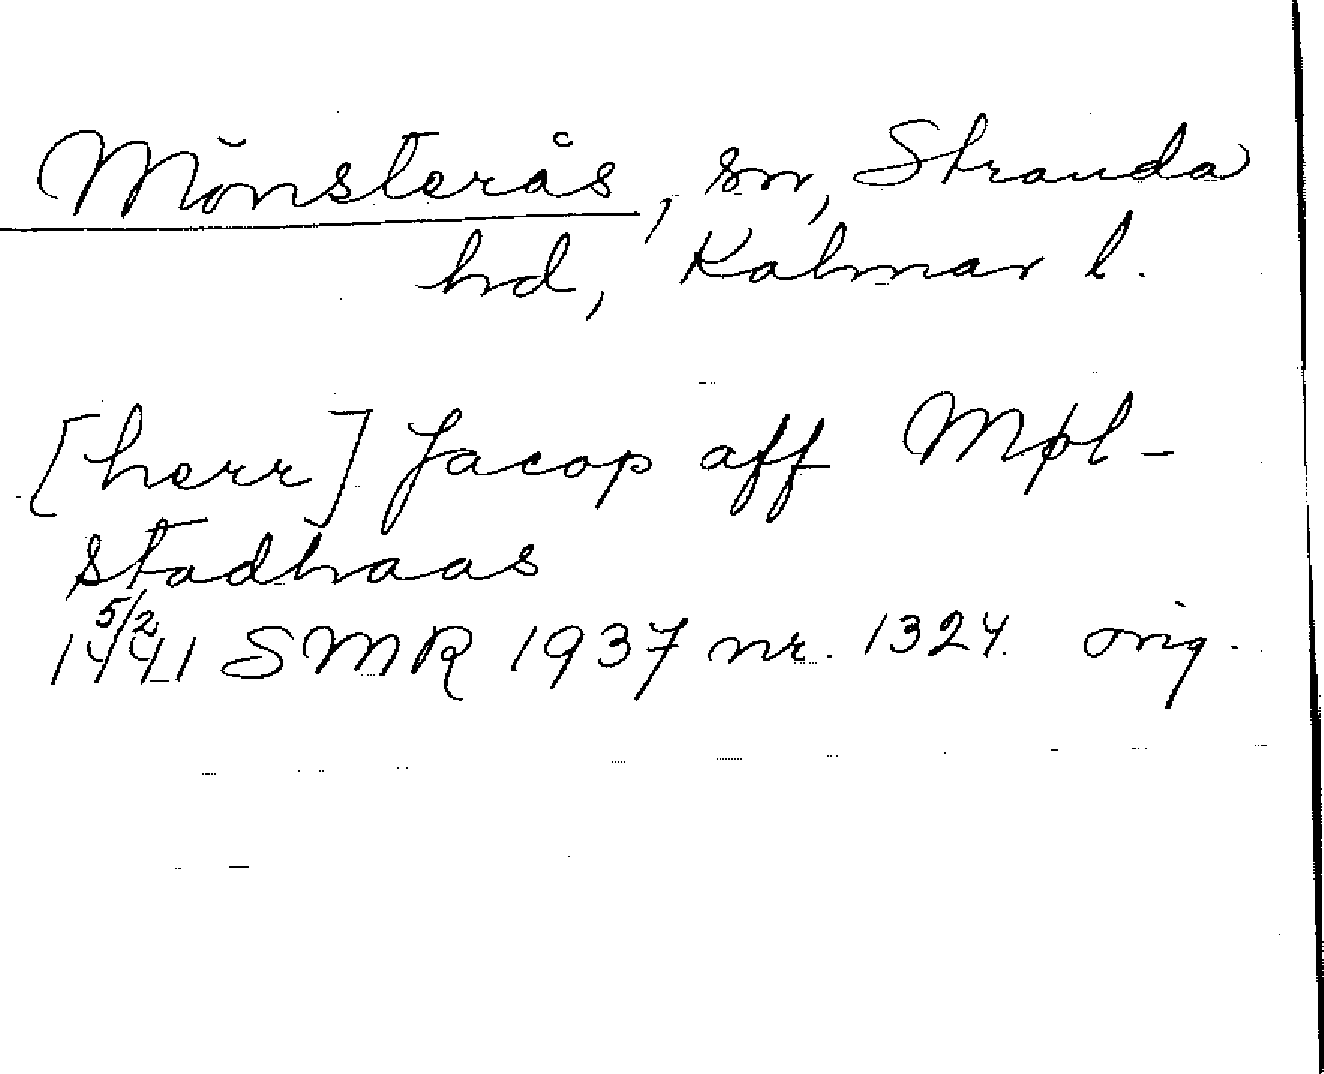 Mönsterås, sn, Stranda
hd, Kalmar l.
[herr] Jacop aff Møl-
stadhaas
5/2
1441 SMR 1937 nr. 1324 orig.